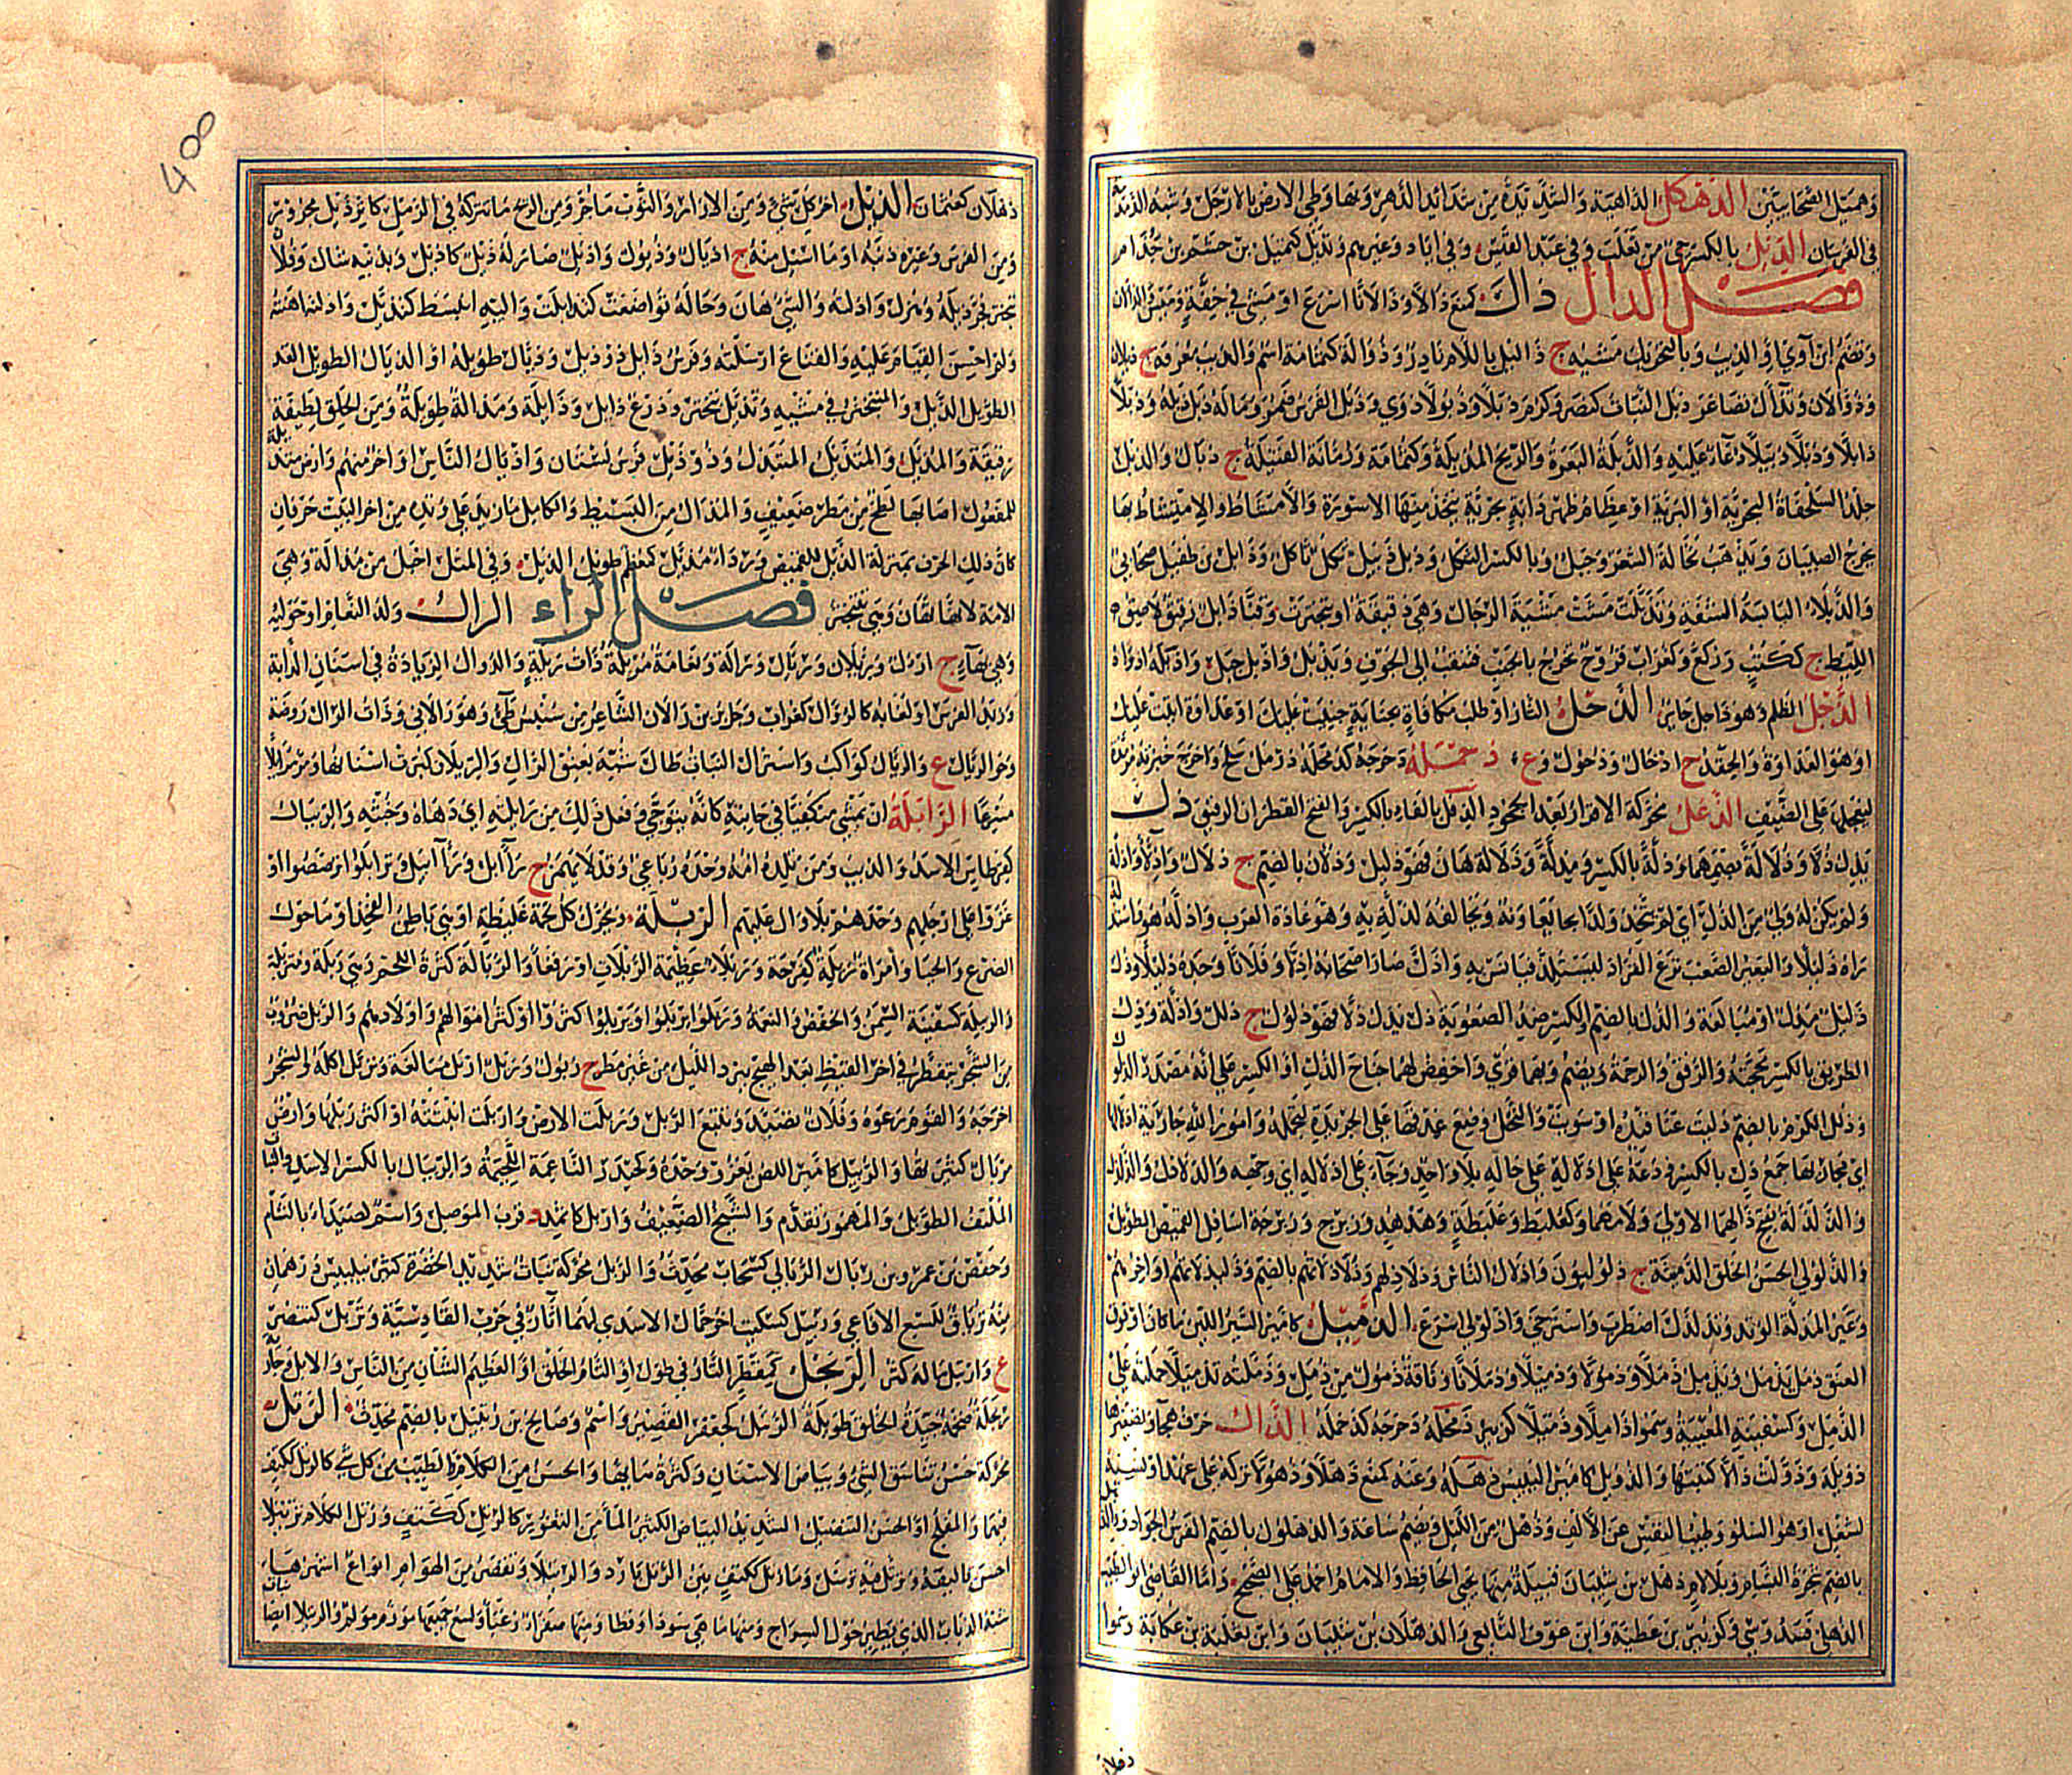 وهميل الصحابيتين الدهكل الداهية والشديدة من شدائد الدهر وبهاء وطئ الارض بالارجل وشبه الذئبة
في القربان الديل بالكسر حي من تغلب وفي عبد القيس وفي اياد وغيرهم وتديل كميل بن حشم بن جذام
فصل الذال ذال كمنع ذالا وذالانا اسرع او مشى في خفة وميس والذالان
وتضم ابن آوى او الذيب وبالتحريك مشيه ج ذاليل باللام نادر وذؤالة كثمامة اسم والذيب معرفة ج ذيلان
وذؤلان وتذاءل تصاغر ذبل النبات كنصر وكرم ذبلا وذبولا ذوى وذبل الفرس ضمر وماله ذبل ذبله وذبلا
ذابلا وذبلا ذبيلا دعاء عليه والذبلة البعرة والريح المذبلة وكثمامة ورمانة الفتيلة ج ذبال والذبل
جلد السلحفاة البحرية او البرية او عظام ظهر دابة بحرية تتخذ منها الاسورة والامشاط والامتشاط بها
يخرج الصيبان ويذهب نخالة الشعر وجبل وبالكسر الثكل وذبل ذبيل ثكل ثاكل وذابل بن طفيل صحابي
والذبلاء اليابسة الشفة وتذبلت مشت مشية الرجال وهي دقيقة او تبخترت وقنا ذابل رقيق لاصق
الليط ج ككتب وركع وكغراب قروح تخرج بالجنب فتنقب الى الجوف ويذبل واذبل جبل واذبله اذواه
الذحل الظلم وهو ذاجل جائر الذحل الثار او طلب مكافاة بجناية جنيت عليك او عداوة اتيت عليك
او هو العداوة والحقد ج اذحال وذحول وع ذحمله دحرجه كذمحله ذرمل سلح واخرج خبزته مرمدة
ليعجلها على الضيف الذعل محركة الاقرار بعد الجحود الذفل بالفاء بالكسر والفتح القطران الرقيق ذل
يذل ذلا وذلالة بضمهما وذلة بالكسر ومذلة وذلالة هان فهو ذليل وذلان بالضم ج ذلال واذلاء واذلة
ولم يكن له ولي من الذل اي لم يتخذ وليا يعاونه ويحالفه لذلة به وهو عادة العرب واذله هو واستذله
راه ذليلا والبعير الصعب نزع القراد ليستلذ فيانس به واذل صار اصحابه اذلاء وفلانا وجده ذليلا وذل
ذليل مذل او مبالغة والذل بالضم والكسر ضد الصعوبة ذل يذل ذلا فهو ذلول ج ذلل واذلة وذل
الطريق بالكسر محجته والرفق والرحمة ويضم وبهما قرئ واخفض لهما جناح الذل او الكسر على انه مصدر الذلول
وذلل الكرم بالضم دليت عناقيده او سويت والنخل وضع عذقها على الجريدة لتحمله وامور الله جارية اذلالها
اي مجاريها جمع ذل بالكسر ودعه على اذلاله على حاله بلا واحد وجاء على اذلاله اي وجهه والذلاذل والذلذل
والذلذلة بفتح ذالهما الاولى ولامهما وكعلبط وعلبطة وهدهد وزبرج وزبرجة اسافل القميص الطويل
والذلولي الحسن الخلق الدمثه ج ذلوليون واذلال الناس وذلاذلهم وذلاذلاتهم بالضم وذليذلاتهم اواخرهم
وعير المذلة الوتد وتذلذل اضطرب واسترخى واذلولى اسرع الذميل كامير السير اللين ما كان او فوق
العنق ذمل يذمل ويذمل ذملا وذمولا وذميلا وذملانا وناقة ذمول من ذمل وذملته تذميلا حملته على
الذميل وكسفينة المعيية وسموا ذاملا وذميلا كزبير ذمحله دحرجه كذحمله الذال حرف هجاء وتصغيرها
ذويلة وذولت ذالا كتبتها والذويل كامير اليبيس ذهله وعنه كمنع ذهلا وذهولا تركه على عهد او نسيه
لشغل او هو السلو وطيب النفس عن الالف وذهل من الليل ويضم ساعة والذهلول بالضم الفرس الجواد
بالضم شجرة البشام وبلا لام ذهل بن شيبان قبيلة منها يحيى الحافظ والامام احمد على الصحيح واما القاضي ابو الطاهر
الذهلي فسدوسي وكزبير بن عطية وابن عوف التابعي والذهلان بن شيبان وابن ثعلبة بن عكابة وسموا
ذهلان
ذهلان كعثمان الذيل اخر كل شيء ومن الازار والثوب ما جر ومن الريح ما تتركه في الرمل كاثر ذيل مجرور
ومن الفرس وغيره ذنبه او ما اسبل منه ج اذيال وذيول واذيل صار له ذيل كاذيل وبذنبه شال وفلان
تبختر فجر ذيله وهزل واذلته والشيء هان وحاله تواضعت كتذايلت واليه انبسط كتذيل واذلته اهنته
ولم احسن القيام عليه والقناع ارسلته وفرس ذايل ذو ذيل وذيال طويله او الذيال الطويل القد
الطويل الذيل والمتبختر في مشيه وتذيل تبختر ودرع ذايل وذايلة ومذالة طويلة ومن الحلق لطيفة
رقيقة والمذيل والمتذيل المتبذل وذو ذيل فرس لشتان واذيال الناس اواخر منهم وارض متذيلة
للمفعول اصابها لطخ من مطر ضعيف والمذال من البسيط والكامل ما زيد على وتده من اخر البيت حرفان
كان ذلك الحرف بمنزلة الذيل للقميص ورداء مذيل كمعظم طويل الذيل وفي المثل اخيل من مذالة وهي
الامة لانها تهان وهي تتبختر فصل الراء الرال ولد النعام او حوليه
وهي بهاء ج ارؤل ورئلان ورئال ورئالة ونعامة مرئلة ذات رئلة والرؤال الزيادة في اسنان الدابة
وزبد الفرس او لعابه كالرؤال كغراب وجابر بن رالان الشاعر من سنبس طيئ وهو رالاني وذات الرال روضة
وجو الرئال ع والرئال كواكب واسترال النبات طال شبه بعنق الرال والرئلان كبرت اسنانها ومر مرائلا
مسرعا الرابلة ان تمشي متكفيا في جانبه كانه يتوخى وفعل ذلك من رابلته اي دهاه وخبثه والريبال
كقرطاس الاسد والذيب ومن تلده امه وحده رباعي وقد لا يهمز ج رابل ورابيل وترابلوا تلصصوا او
غزوا على ارجلهم وحدهم بلا وال عليهم الربلة ويحرك كل لحمة غليظة او هي باطن الفخذ او ما حول
الضرع والحيا وامراة ربلة كفرحة وربلاء عظيمة الربلات او رفغاء والربالة كثرة اللحم وهي ربلة ومتربلة
والربيلة كسفينة السمن والخفض والنعمة وربلوا يربلوا ويربلوا كثروا او كثر اموالهم واولادهم والربل ضروب
من الشجر يتفطر في اخر القيظ بعد الهيج ببرد الليل من غير مطر ج ربول وربل اربل مبالغة وتربل اكله والشجر
اخرجه والقوم رعوه وفلان تصيد وتتبع الربل وربلت الارض واربلت انبتته او اكثر ربلها وارض
مربال كثيرتها والربيل كامير اللص يغزو وحده وكحيدر الناعمة اللحيمة والريبال بالكسر الاسد والنبات
الملتف الطويل والمهموز تقدم والشيخ الضعيف واربل كاثمد د قرب الموصل واسم لصيداء بالشام
وحفص بن عمرو بن ربال الربالي كسحاب محدث والربل محركة نبات شديد الخضرة كثير ببلبيس درهمان
منه ترياق للسع الافاعي وربيل كسكيت اخو حمال الاسدي لهما اثار في حرب القادسية وتربل كتنصر
ع واربل ماله كثر الربحل كقمطر التار في طول او التام الخلق او العظيم الشان من الناس والابل وجارية
ربحلة ضخمة جيدة الخلق طويلة الرتبل كجعفر القصير واسم وصالح بن رتبيل بالضم محدث الرتل
محركة حسن تناسق الشيء وبياض الاسنان وكثرة مائها والحسن من الكلام والطيب من كل شيء كالرتل ككتف
فيهما والمفلج او الحسن التنضيد الشديد البياض الكثير الماء من الثغور كالرتل ككتف ورتل الكلام ترتيلا
احسن تاليفه وترتل فيه ترسل وماء رتل ككتف بين الرتل بارد والرتيلا ويقصر من الهوام انواع اشهرها
شبه الذباب الذي يطير حول السراج ومنها ما هي سوداء رقطا ومنها صفراء زغباء ولسع جميعها مورم مولم والرتيلا ايضا